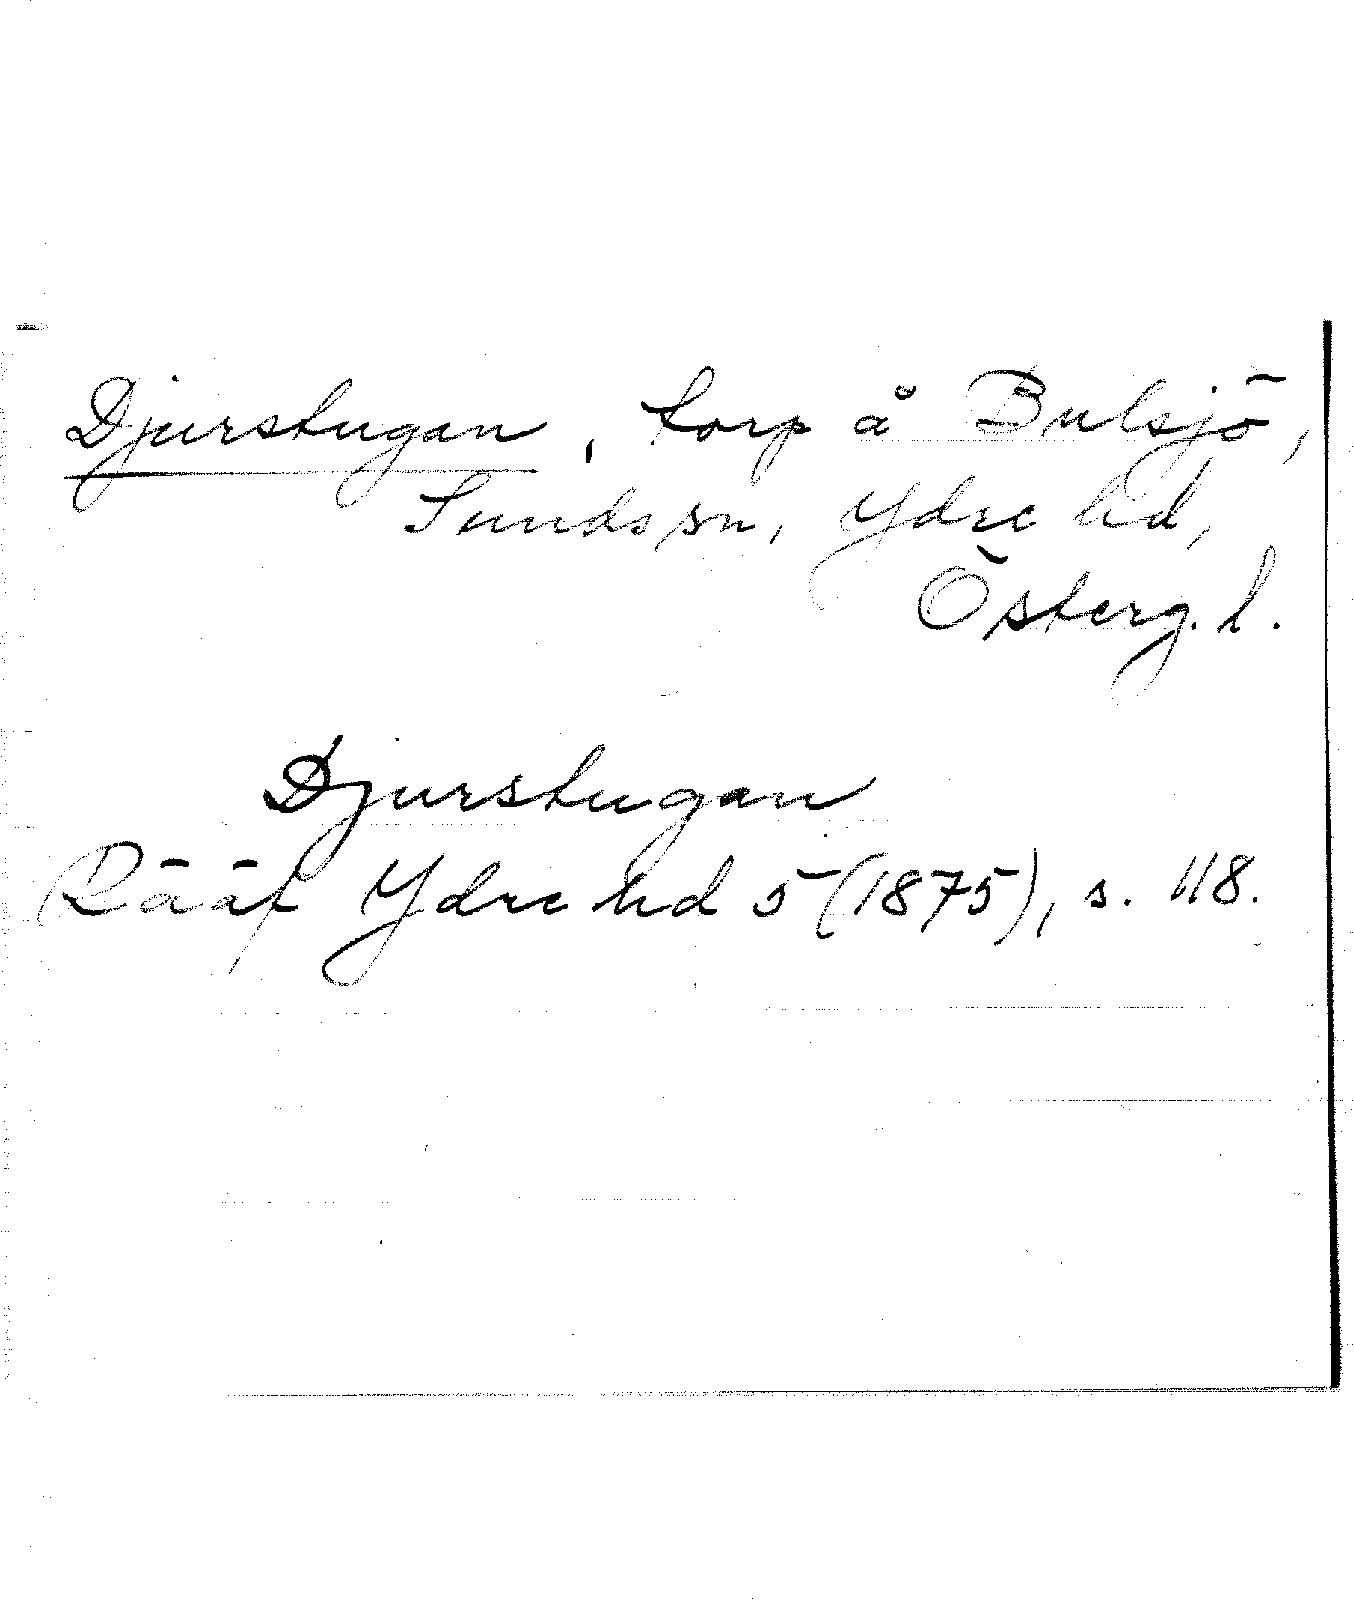 Djurstugan, torp å Bulsjö,
Sunds sn, Ydre hd,
Österg. l.
Djurstugan
Rääf Ydre hd 5 (1875), s. 118.